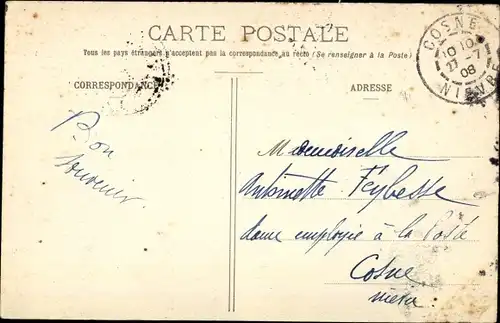 CARTE POSTALE
Tous les pays étrangers n'acceptent pas la correspondance au recto (Se renseigner à la Poste)
CORRESPONDANCE
ADRESSE
COSNE
10 10
27 -7
08
NIEVRE
Bon
souvenir
Mademoiselle
Antoinette Feybesse
dame employée à la Poste
Cosne